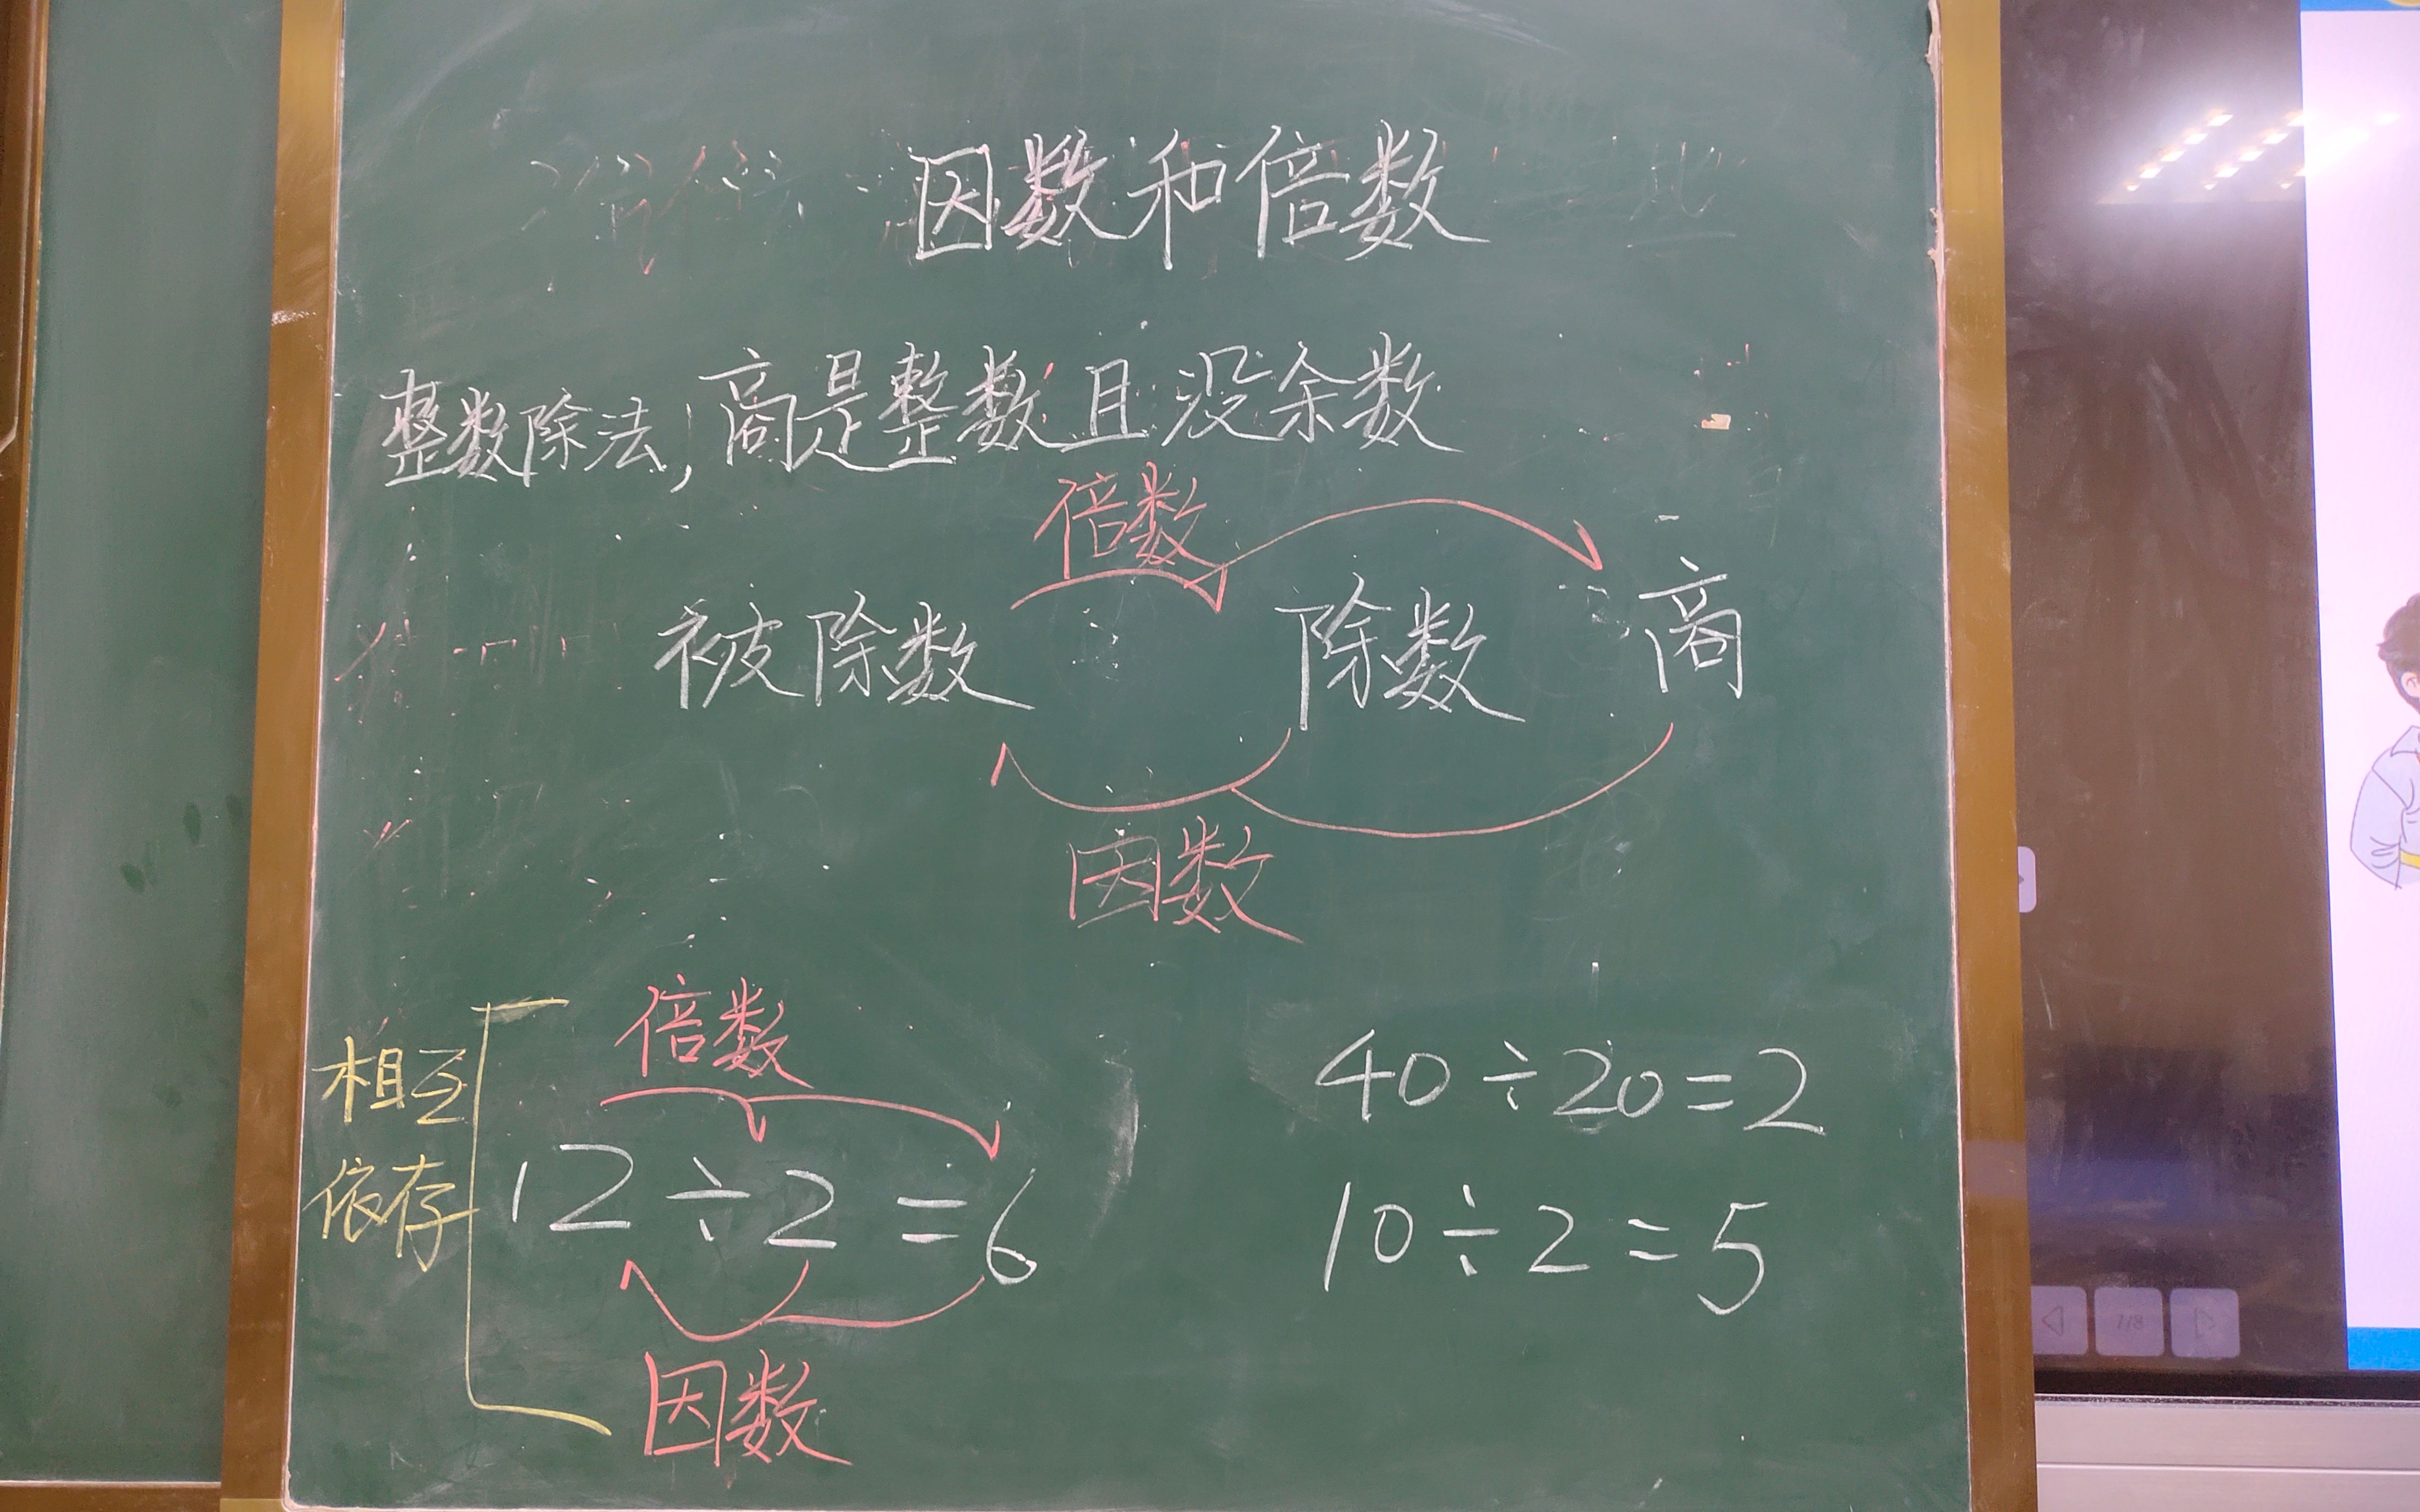 因数和倍数
整数除法,商是整数且没余数
倍数
被除数 除数 商
因数
倍数
相互
依存
12÷2=6
因数
40÷20=2
10÷2=5
7/8